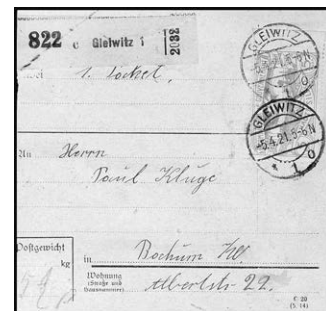 822 c Gleiwitz 1 2032
GLEIWITZ
GLEIWITZ
-5.4.21.5-6N
1. Packet.
An Herrn
Paul Kluge
Postgewicht
kg
in Bochum I/W.
Wohnung
(Straße und
Hausnummer)
Albertstr. 22.
C. 20
(5. 14)